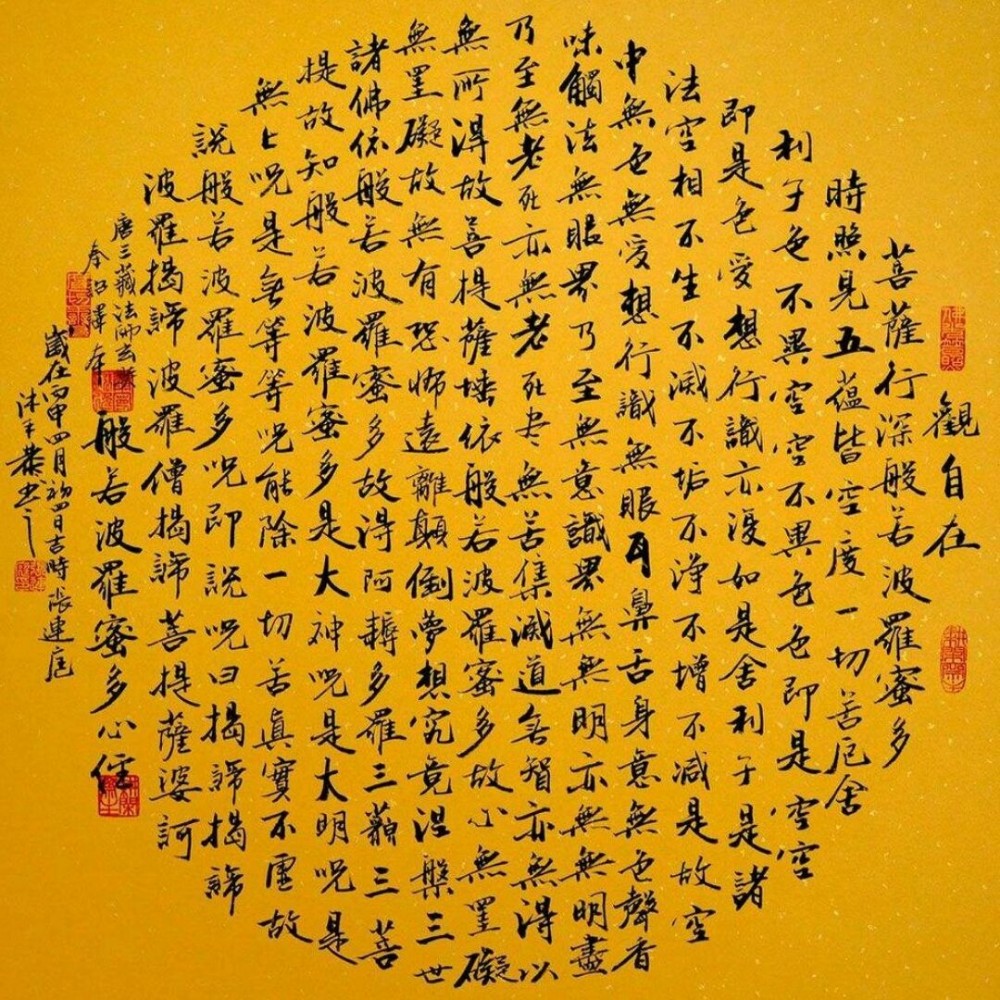 觀自在
菩薩行深般若波羅蜜多
時照見五蘊皆空度一切苦厄舍
利子色不異空空不異色色即是空空
即是色受想行識亦復如是舍利子是諸
法空相不生不滅不垢不淨不增不減是故空
中無色無受想行識無眼耳鼻舌身意無色聲香
味觸法無眼界乃至無意識界無無明亦無無明盡
乃至無老死亦無老死盡無苦集滅道無智亦無得以
無所得故菩提薩埵依般若波羅蜜多故心無罣礙
無罣礙故無有恐怖遠離顛倒夢想究竟涅槃三世
諸佛依般若波羅蜜多故得阿耨多羅三藐三菩
提故知般若波羅蜜多是大神呪是大明呪是
無上呪是無等等呪能除一切苦真實不虛故
說般若波羅蜜多呪即說呪曰揭諦揭諦
波羅揭諦波羅僧揭諦菩提薩婆訶
唐三藏法師玄奘
奉詔譯本
般若波羅蜜多心經
歲在丙申四月初四日吉時張連
沐手恭書之